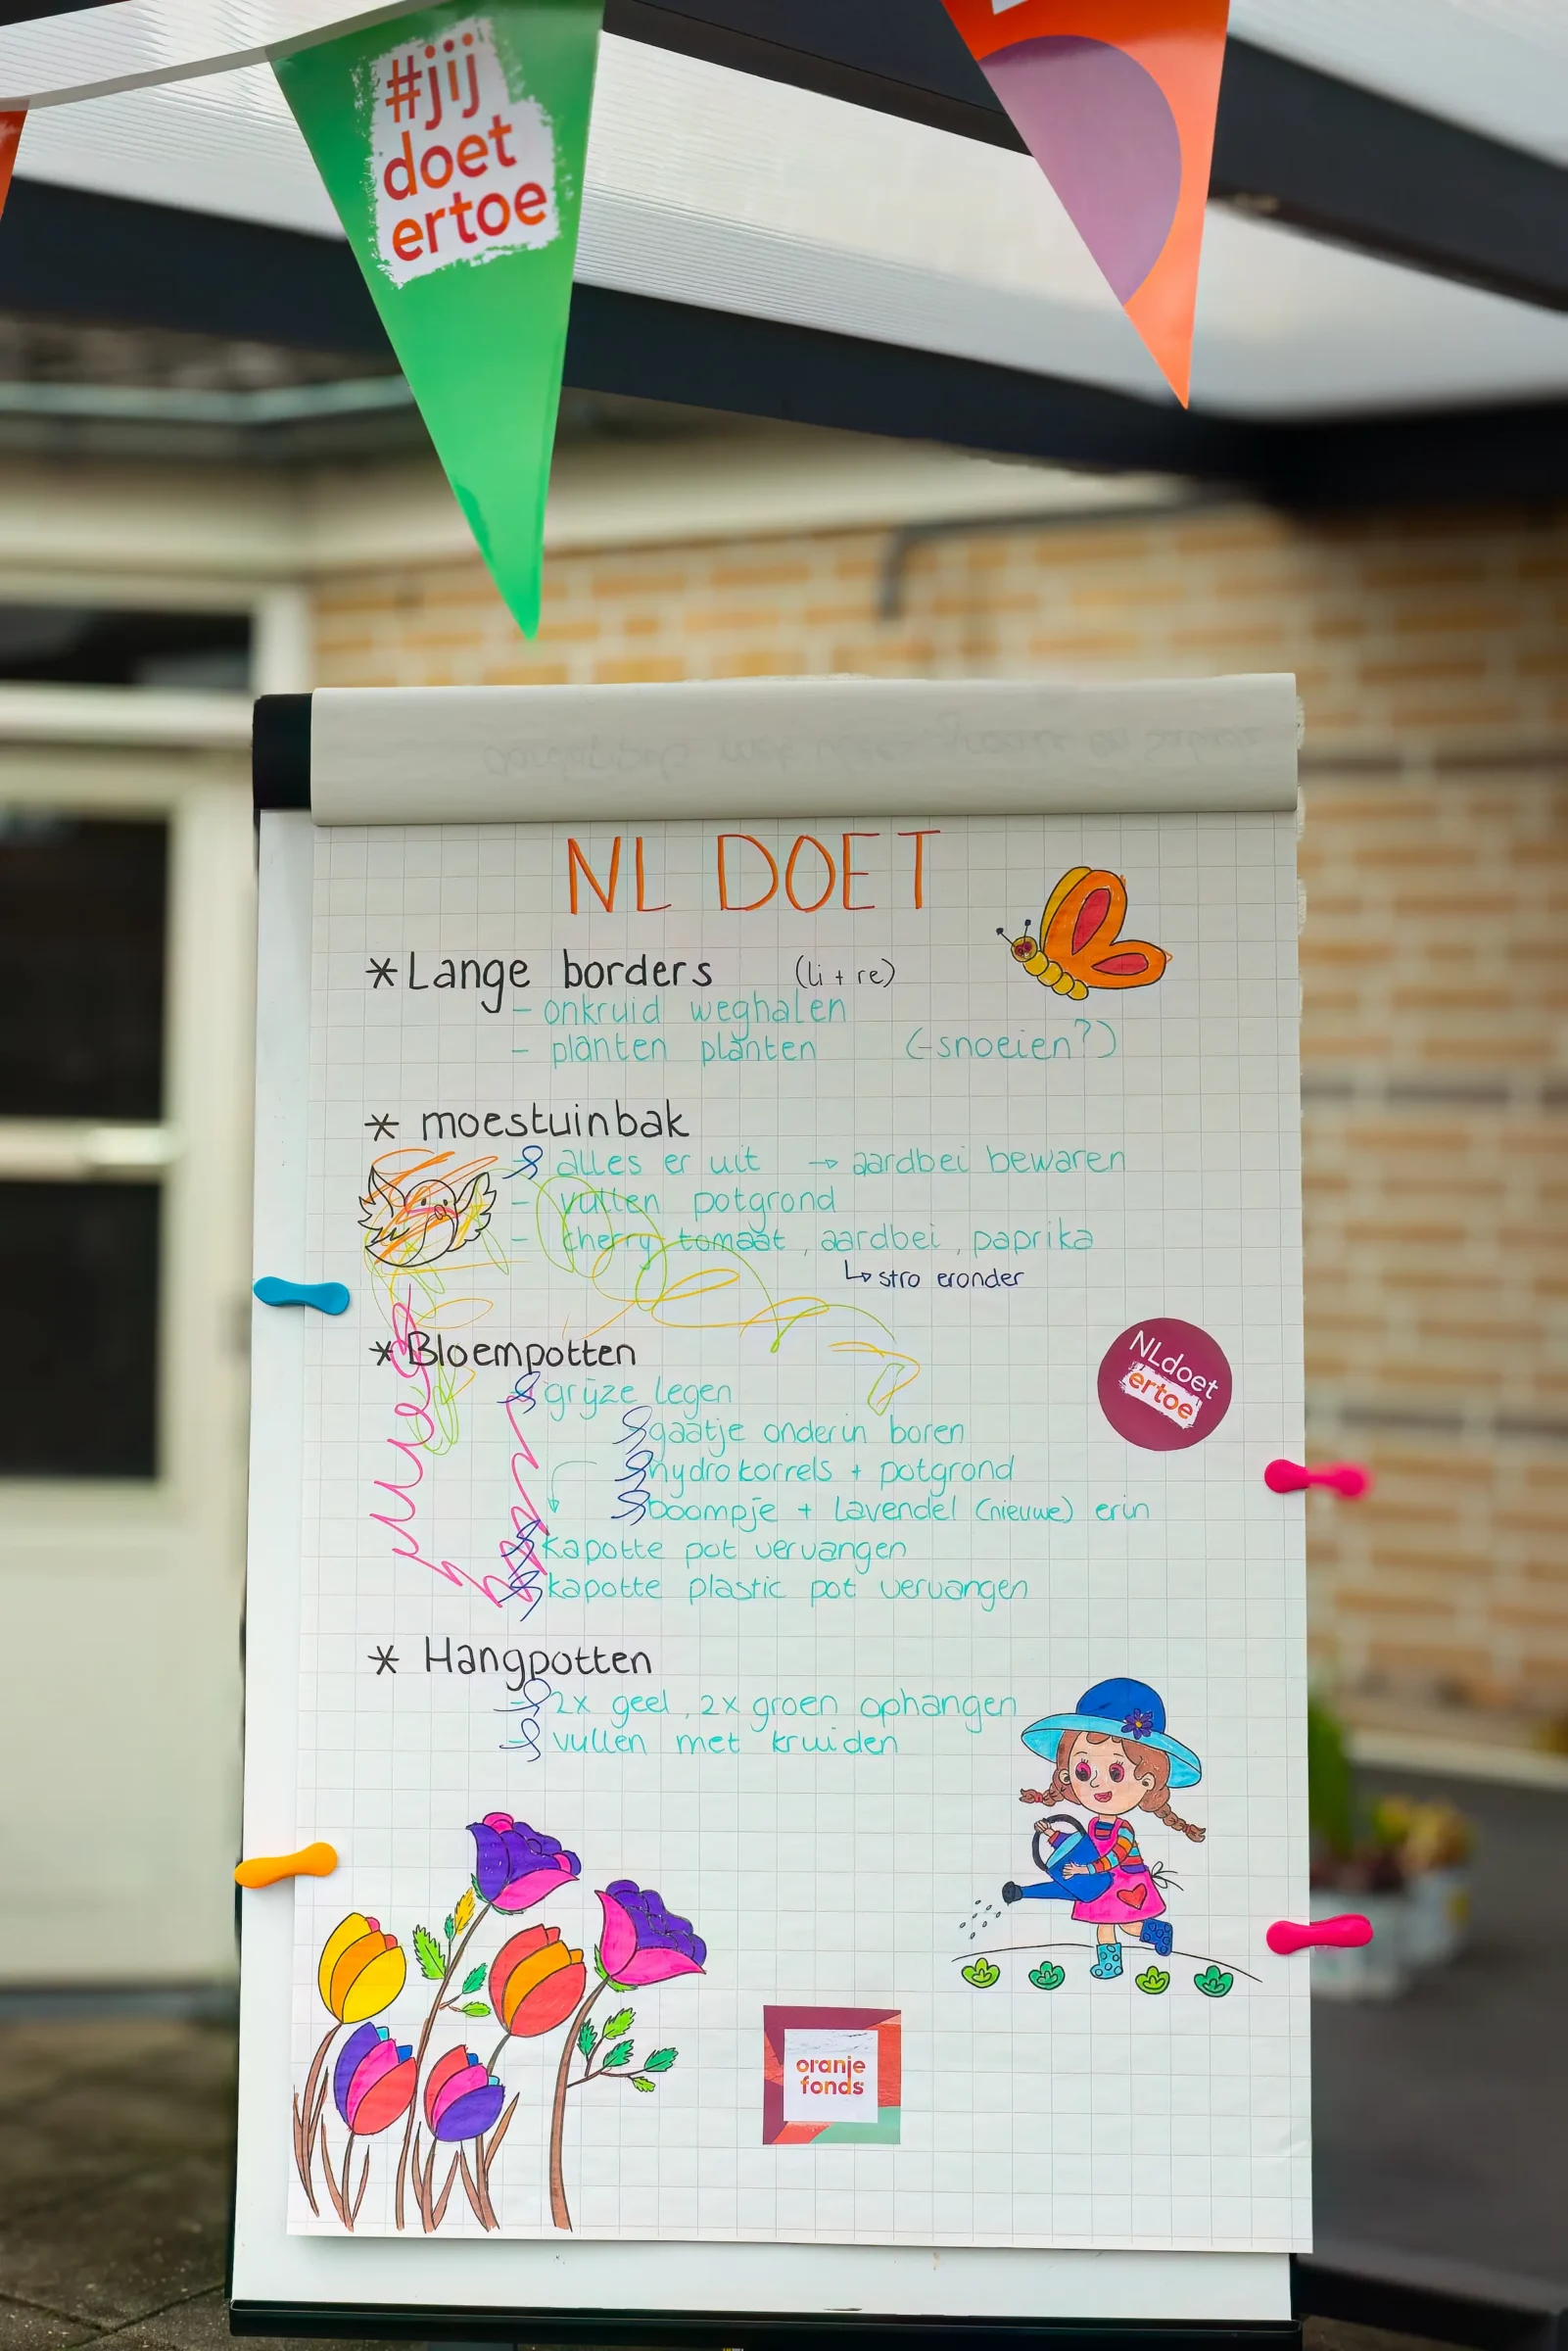 #jij
doet
ertoe
NL DOET
* Lange borders (li + re)
- onkruid weghalen
- planten planten (-snoeien?)
* moestuinbak
- alles er uit → aardbei bewaren
- vullen potgrond
- cherry tomaat, aardbei, paprika
↳ stro eronder
* Bloempotten
- grijze legen
- gaatje onderin boren
- hydrokorrels + potgrond
- boompje + lavendel (nieuwe) erin
- kapotte pot vervangen
- kapotte plastic pot vervangen
NLdoet
ertoe
* Hangpotten
- 2x geel, 2x groen ophangen
- vullen met kruiden
oranje
fonds